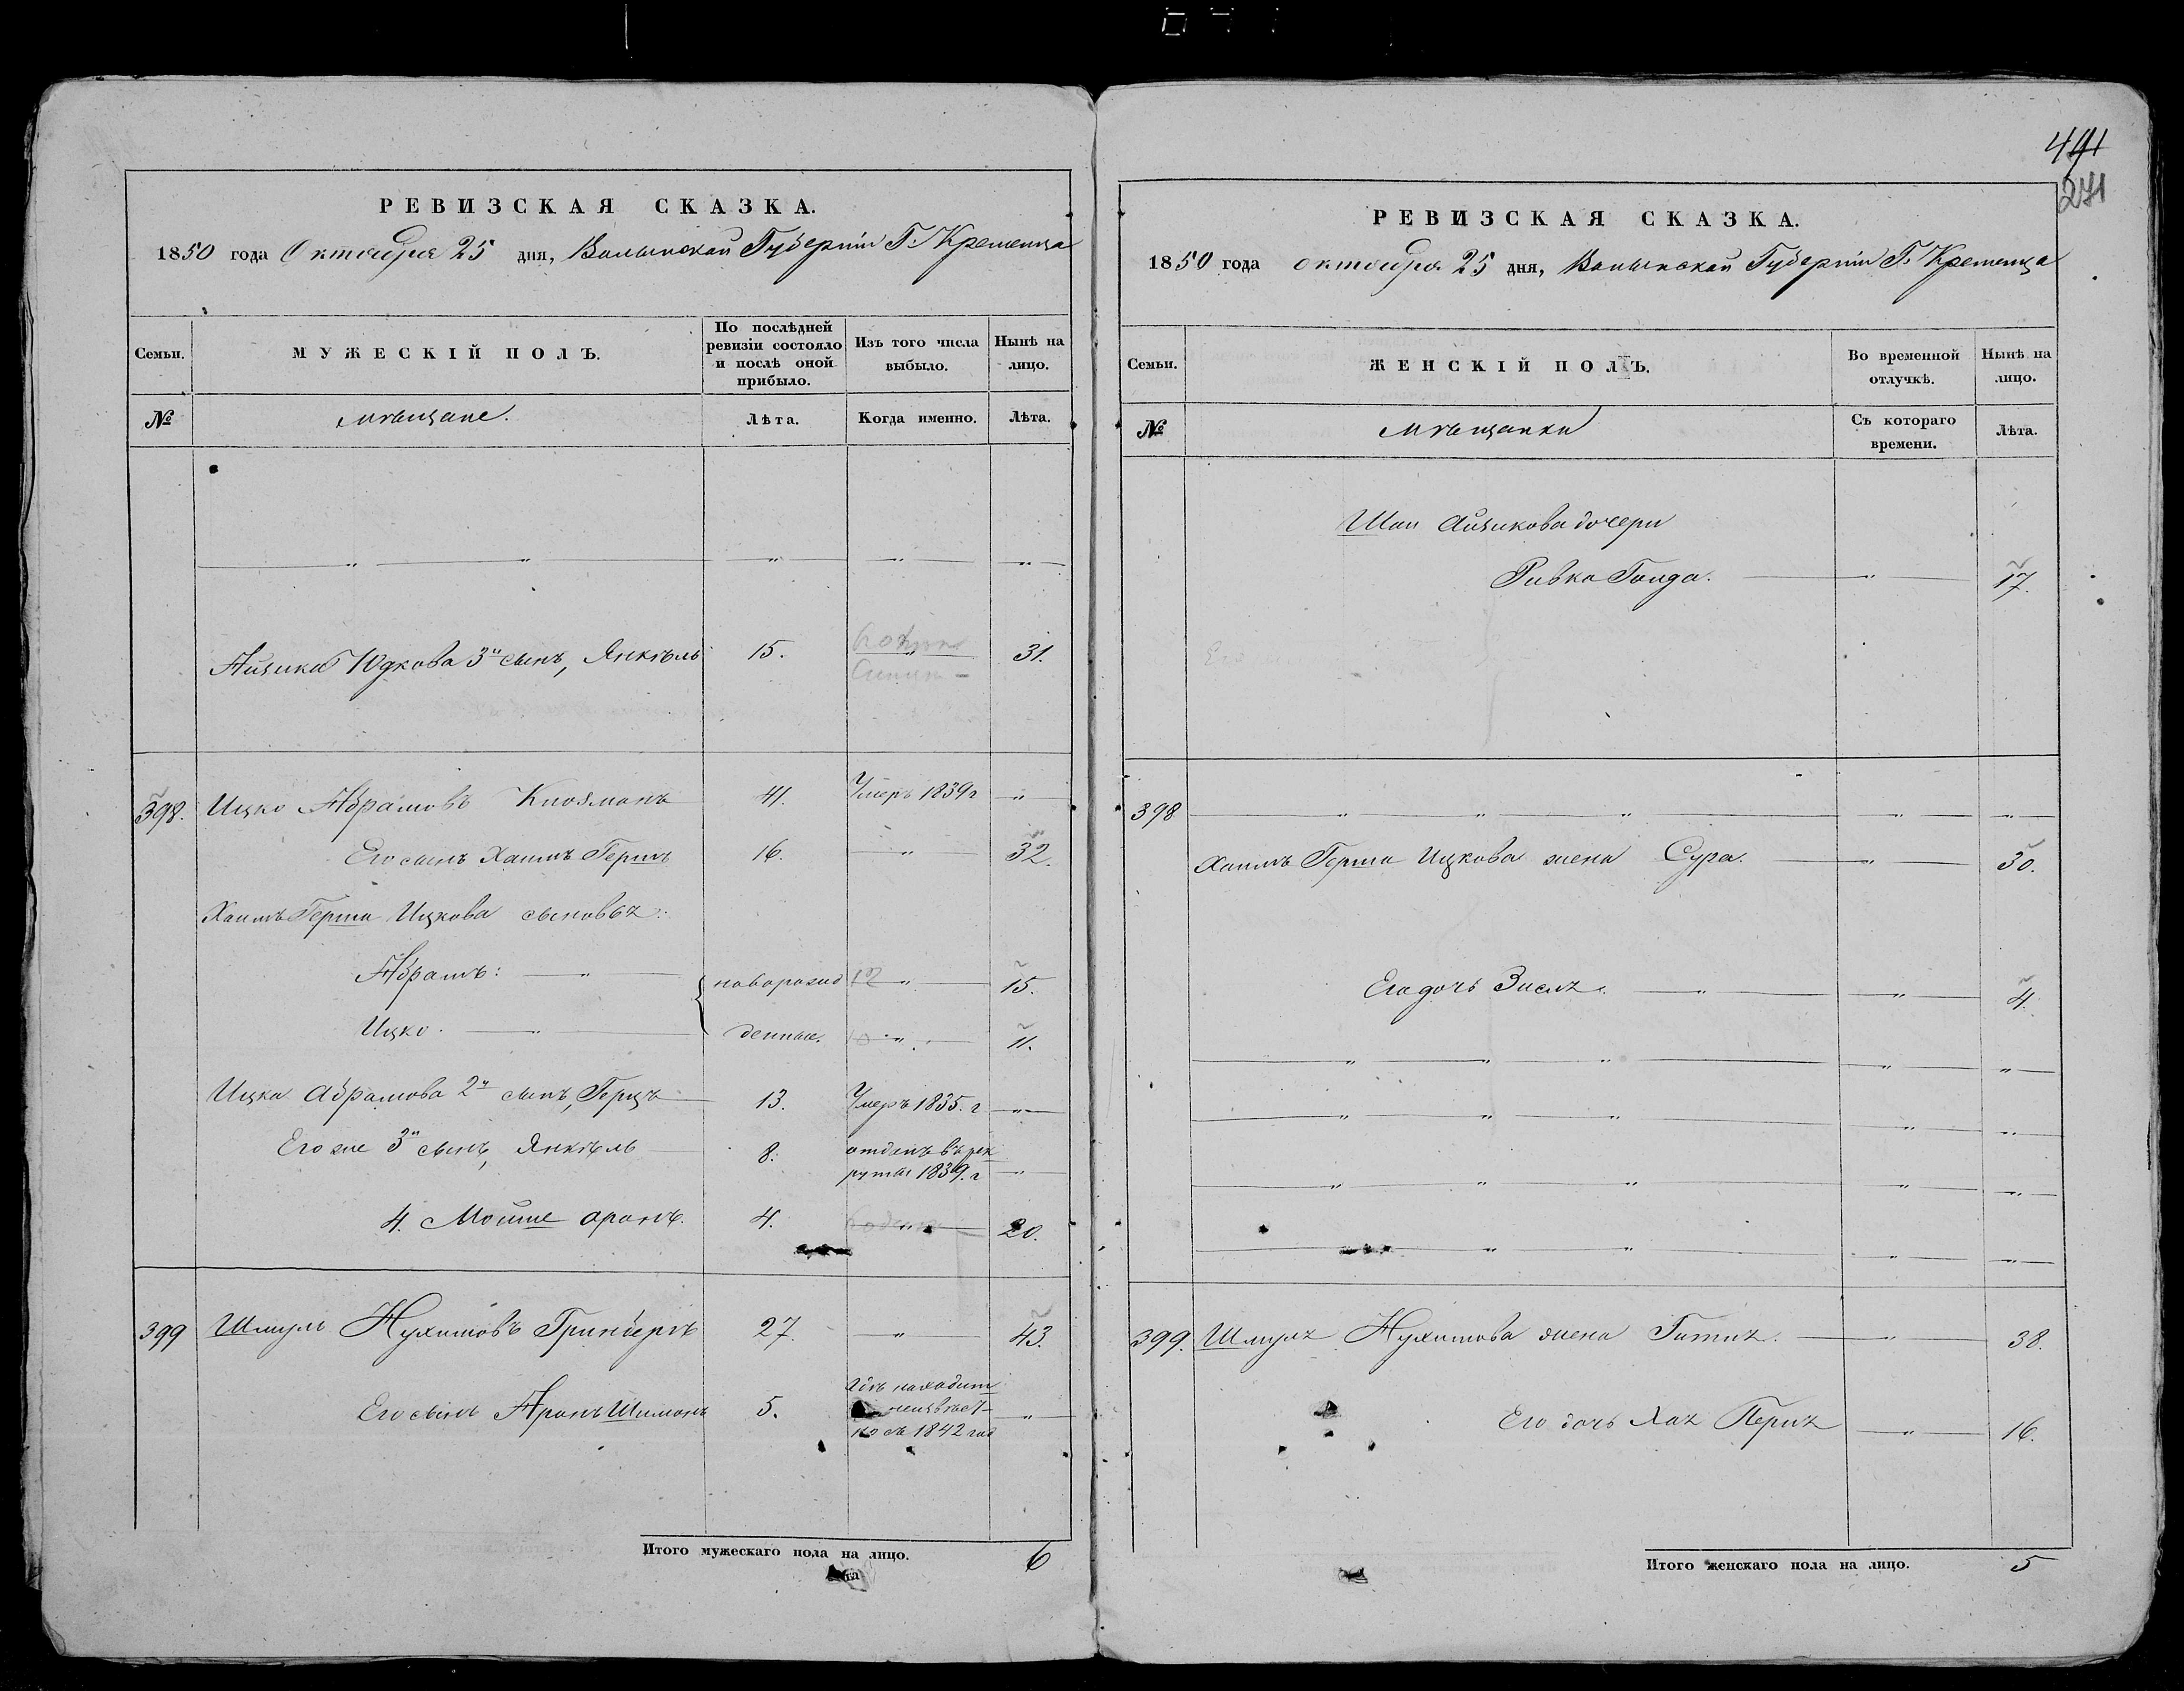 491
271
РЕВИЗСКАЯ СКАЗКА.
1850 года Октября 25 дня, Волынской Губернiи Г. Кременца
Семьи. МУЖЕСКІЙ ПОЛЪ. По послѣдней ревизіи состояло и послѣ оной прибыло. Изъ того числа выбыло. Нынѣ на лицо.
№ мѣщане. Лѣта. Когда именно. Лѣта.
Айзика Юдкова 3й сынъ, Янкѣль 15. " 31.
398. Ицко Абрамовъ 41. Умеръ 1839 г "
Его сынъ Хаимъ Гершъ 16. " 32.
Хаимъ Герша Ицкова сыновья:
Абрамъ: " новорожд 12 " 15.
Ицко. " денные. " 11.
Ицка Абрамова 2й сынъ, Герцъ 13. Умеръ 1835. г "
Его же 3й сынъ, Янкѣль 8. отданъ въ рек
руты 1839. г "
4. Мошие аронъ. 4. " 20.
399 Шмуль Нухимовъ Гринбергъ 27. " 43.
Его сынъ Аронъ Шимонъ 5. Гдѣ находит
неизвѣст-
но съ 1842 год "
Итого мужескаго пола на лицо. 6
РЕВИЗСКАЯ СКАЗКА.
1850 года октября 25 дня, Волынской Губернiи Г. Кременца
Семьи. ЖЕНСКІЙ ПОЛЪ. Во временной отлучкѣ. Нынѣ на лицо.
№ мѣщанки Съ котораго времени. Лѣта.
Айзикова дочери
Ривка Голда. " 17.
398 " " " " "
Хаимъ Герша Ицкова жена Сура. " 30.
Его дочь Зисля. " " 4.
399. Шмуля Нухимова жена Гитля. " 38.
Его дочь Хая Перля " 16.
Итого женскаго пола на лицо. 5